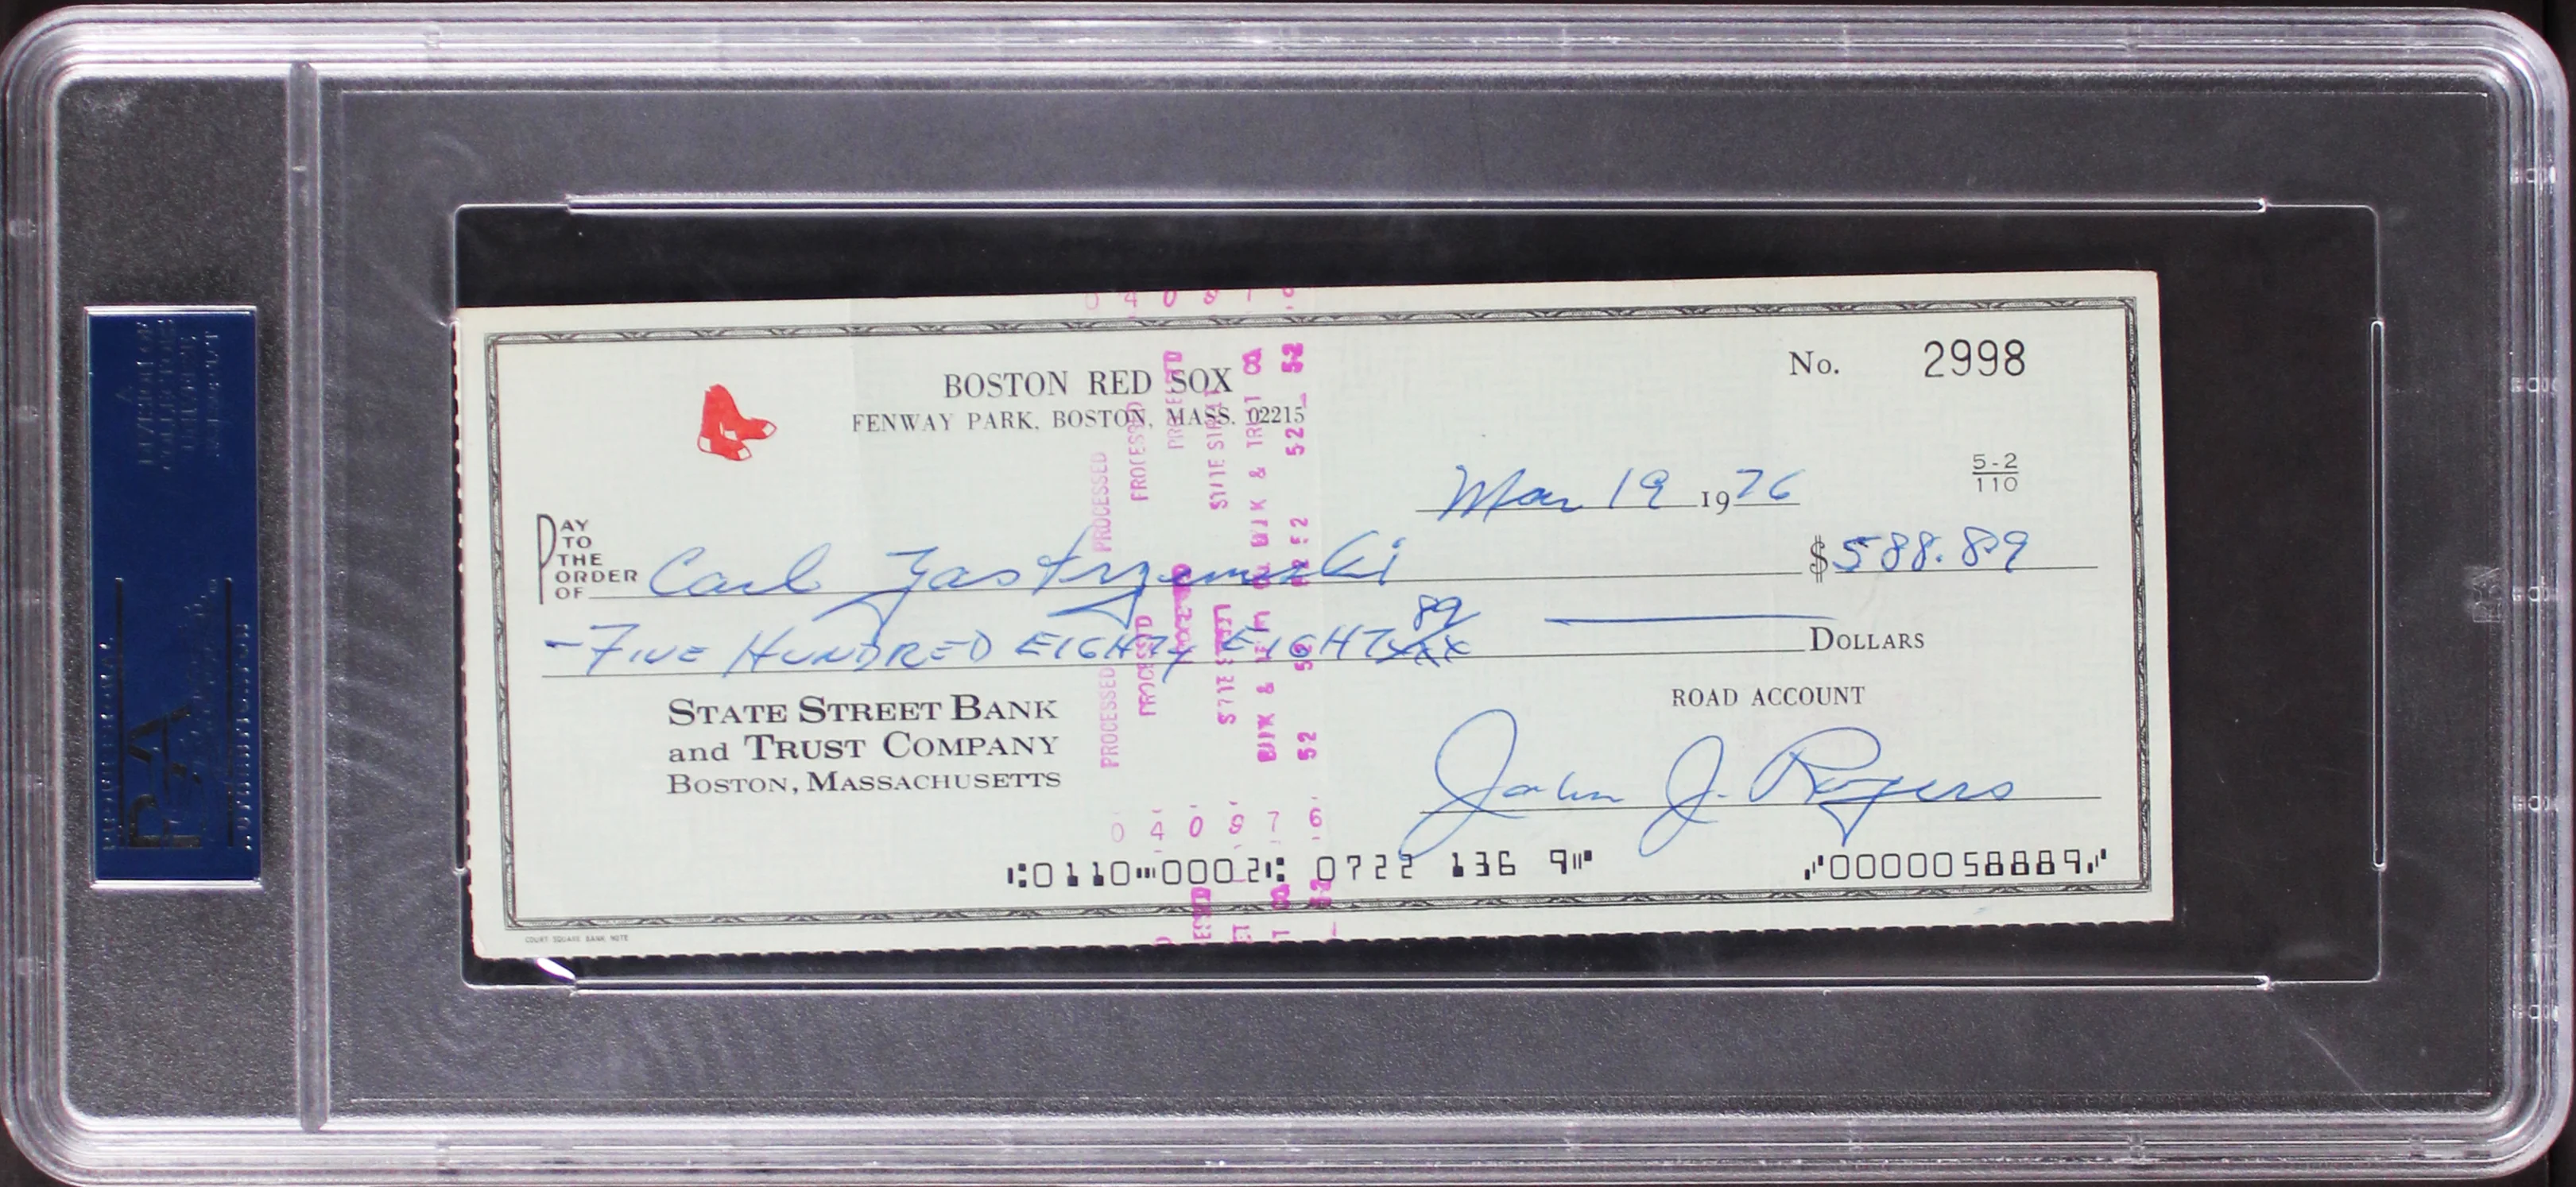 BOSTON RED SOX
FENWAY PARK, BOSTON, MASS. 02215
No. 2998
5-2
110
Mar 19 1976
PAY TO THE ORDER OF Carl Yastrzemski $588.89
-FIVE HUNDRED EIGHTY EIGHT 89/xx DOLLARS
STATE STREET BANK
and TRUST COMPANY
BOSTON, MASSACHUSETTS
ROAD ACCOUNT
John J. Rogers
⑆0110⑉0002⑆ 0722 136 9⑈ ⑇0000058889⑇
COURT SQUARE BANK NOTE
PROCESSED PROCESSED
PROCESSED PROCESSED
04 0 8 7 6
52 52 52
PSA